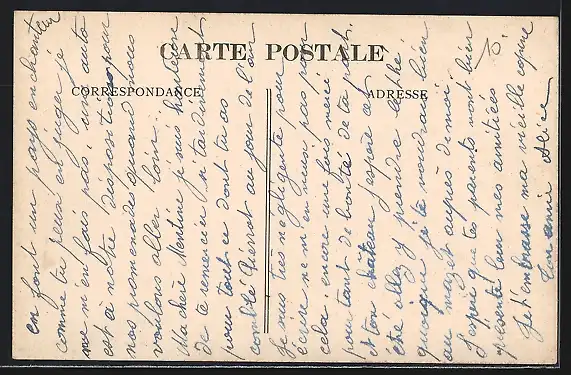 CARTE POSTALE
CORRESPONDANCE
ADRESSE
en font un pays enchanteur
comme tu peux en juger je
ne m'en fais pas, une auto
est à notre disposition pour
nos promenades quand nous
voulons aller loin.
Ma chère je suis honteuse
de te remercier si tardivement
pour tout ce dont tu as
comblé Pierrot au jour de l'an
Je suis très négligente pour
écrire ne m'en veux pas pour
cela; encore une fois merci
pour tant de bonté de ta part.
et ton château j'espère cet
été allez y prendre le thé
quoique je te voudrais bien
au mazet auprès de moi
J'espère que tes parents vont bien
présente leur mes amitiées
Je t'embrasse ma vieille copine
Ton amie Alice